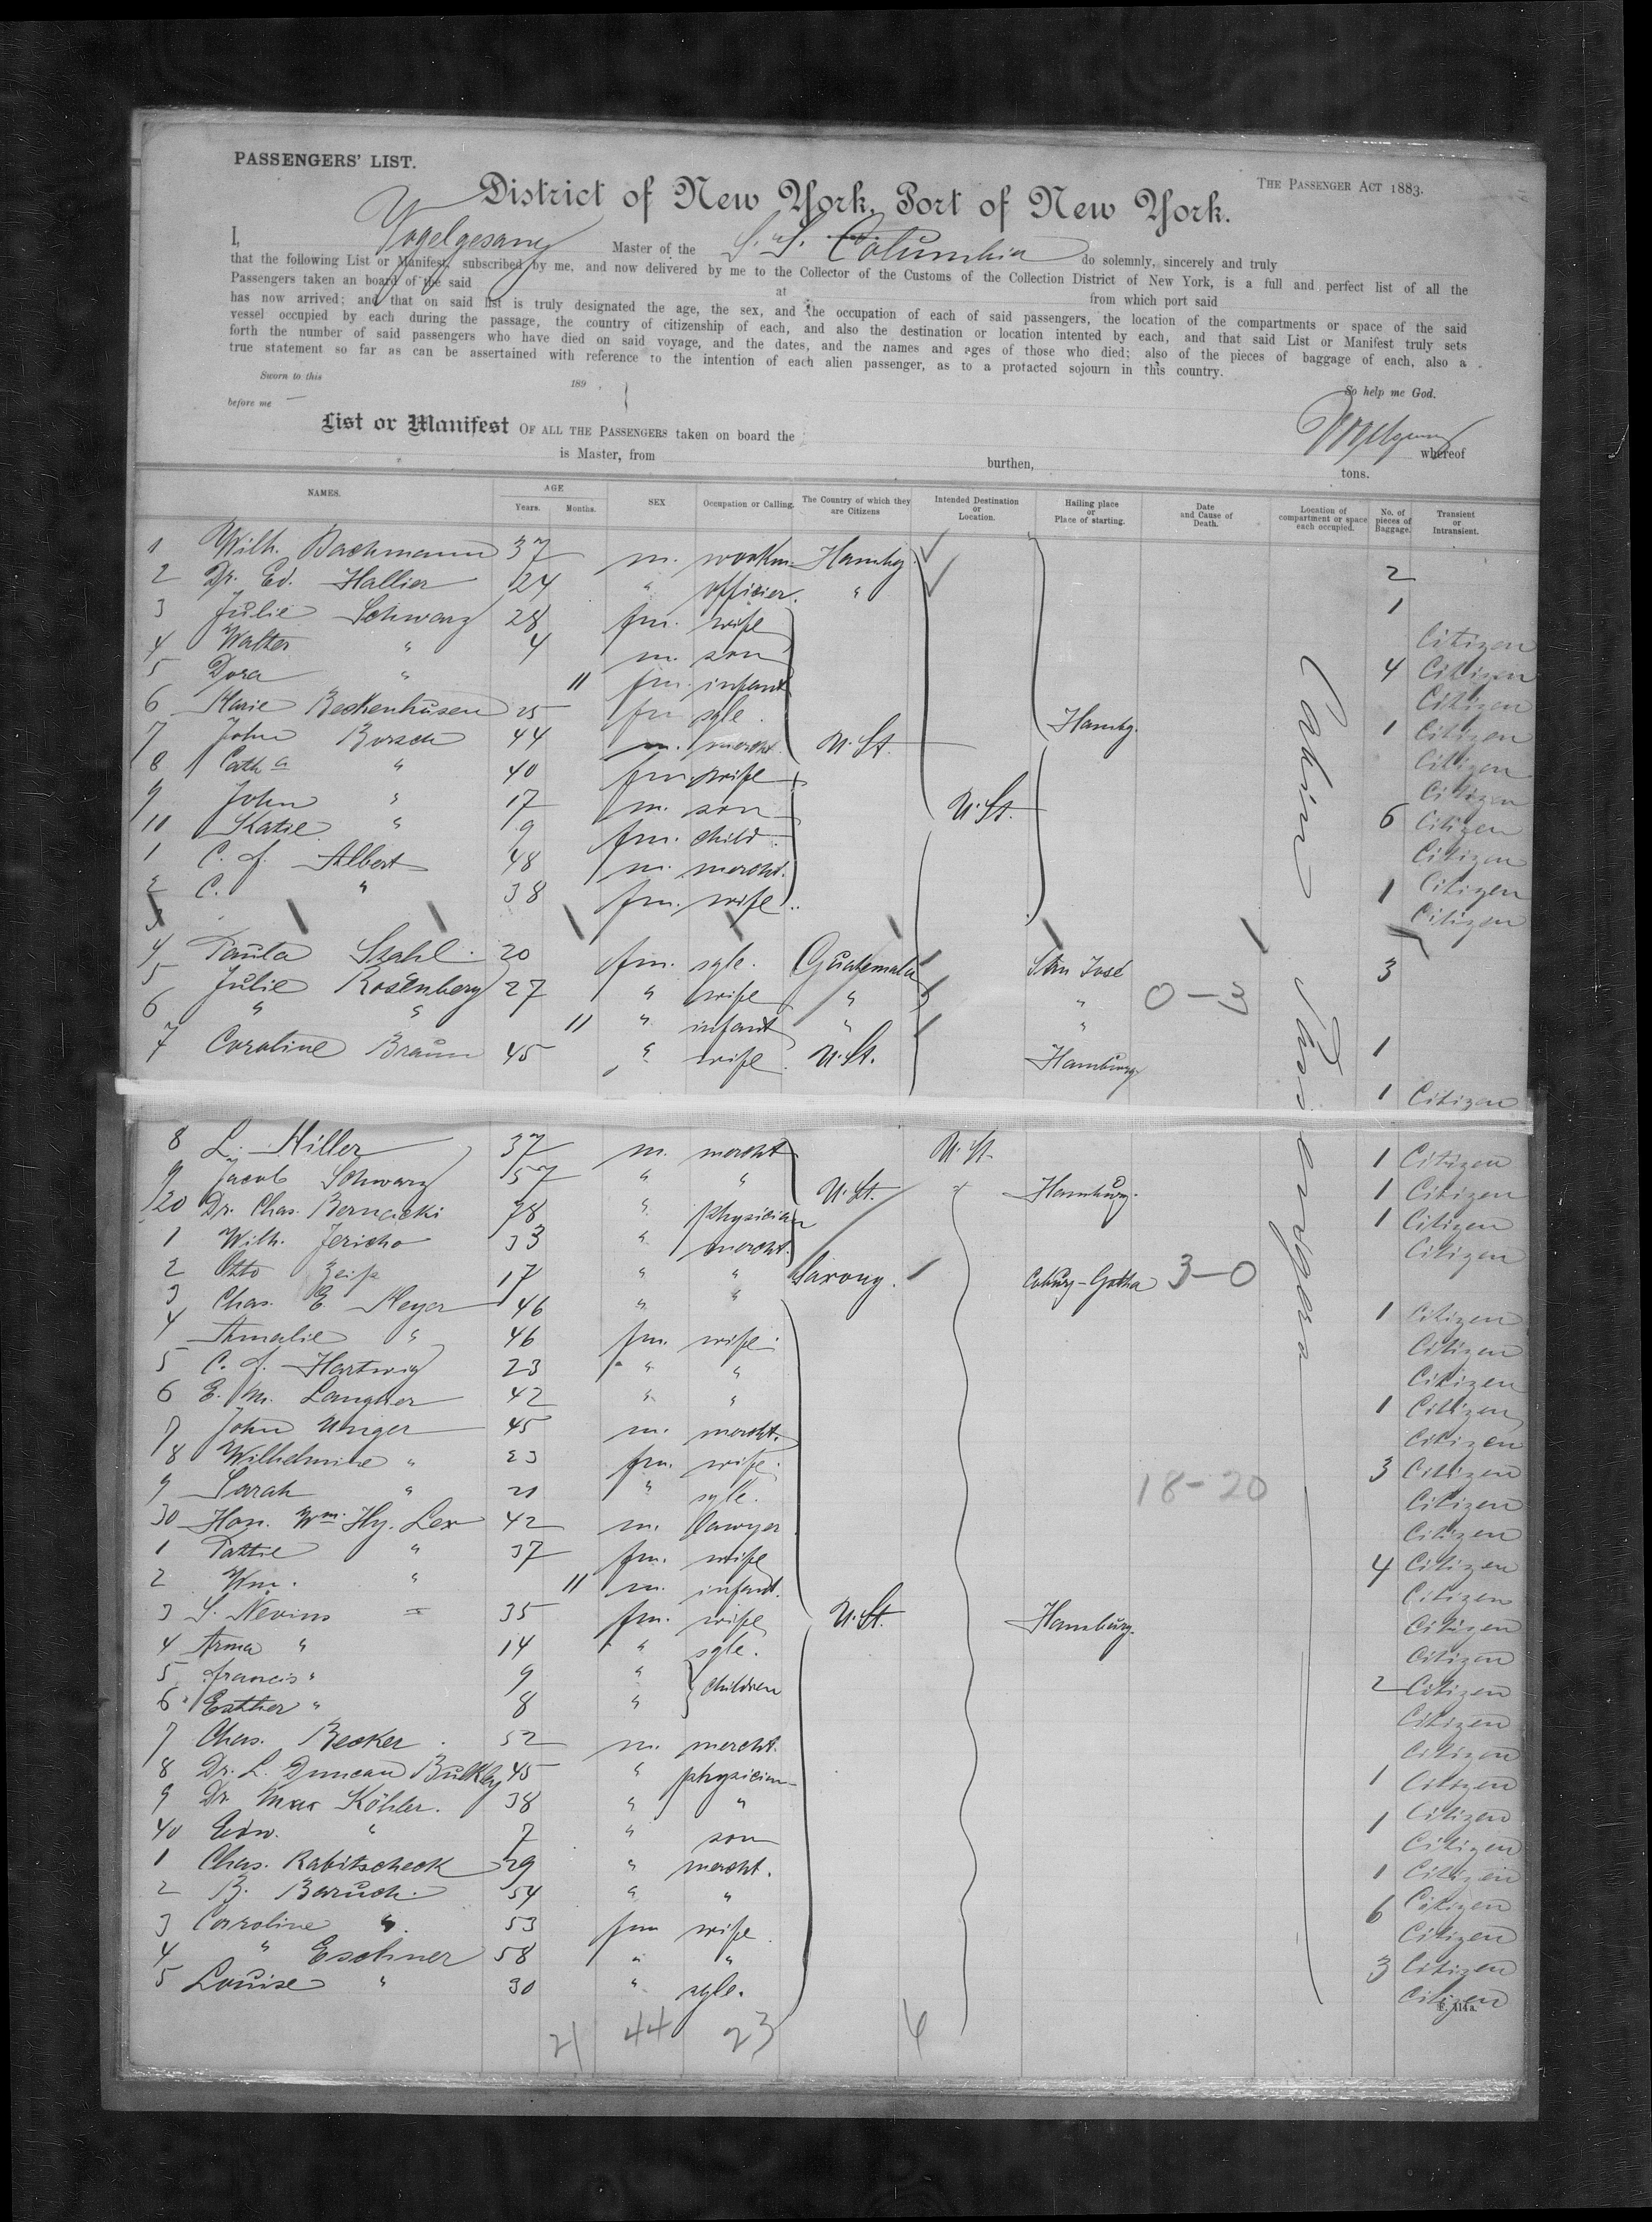 PASSENGERS' LIST.
THE PASSENGER ACT 1883.
District of New York, Port of New York.
I, Vogelgesang Master of the S. S. Columbia do solemnly, sincerely and truly
that the following List or Manifest, subscribed by me, and now delivered by me to the Collector of the Customs of the Collection District of New York, is a full and perfect list of all the
Passengers taken an board of the said at from which port said
has now arrived; and that on said list is truly designated the age, the sex, and the occupation of each of said passengers, the location of the compartments or space of the said
vessel occupied by each during the passage, the country of citizenship of each, and also the destination or location intented by each, and that said List or Manifest truly sets
forth the number of said passengers who have died on said voyage, and the dates, and the names and ages of those who died; also of the pieces of baggage of each, also a
true statement so far as can be assertained with reference to the intention of each alien passenger, as to a protacted sojourn in this country.
Sworn to this 189 So help me God.
before me
Vogelgesang
List or Manifest OF ALL THE PASSENGERS taken on board the whereof
is Master, from burthen, tons.
NAMES. AGE Years. Months. SEX Occupation or Calling. The Country of which they are Citizens Intended Destination or Location. Hailing place or Place of starting. Date and Cause of Death. Location of compartment or space each occupied. No. of pieces of Baggage. Transient or Intransient.
1 Wilh. Bachmann 37 m. workm. Hambg. 2
2 Dr. Ed. Hallier 24 " officier. " 1
3 Julie Schwarz 28 fm. wife Citizen
4 Walter " 4 m. son 4 Citizen
5 Dora " 11 fm. infant Citizen
6 Marie Beckenhusen 25 fm sgle. Hambg. 1 Citizen
7 John Borsch 44 m. mercht. U. St. Citizen
8 Cath a " 40 fm wife Citizen
9 John " 17 m. son U. St. 6 Citizen
10 Katie " 9 fm. child Citizen
1 C. J. Albert 48 m. mercht. 1 Citizen
2 C. " 38 fm. wife Citizen
3
4 Paula Stahl 20 fm. sgle. Guatemala San José 3
5 Julie Rosenberg 27 " wife " " 0-3
6 " " 11 " infant " "
7 Caroline Braun 45 " wife U. St. Hamburg 1
1 Citizen
8 L. Hiller 37 m. mercht U. St. 1 Citizen
9 Jacob Schwarz 57 " " U. St. Hamburg. 1 Citizen
20 Dr. Chas. Bernacki 78 " physician 1 Citizen
1 Wilh. Jericho 33 " mercht. Citizen
2 Otto Zeiss 17 " " Saxony. Coburg-Gotha 3-0
3 Chas. E. Meyer 46 " " 1 Citizen
4 Amalie " 46 fm. wife Citizen
5 C. J. Hartwig 23 " " Citizen
6 E. M. Langher 42 " " 1 Citizen
7 John Unger 45 m. mercht. Citizen
8 Wilhelmine " 23 fm. wife 3 Citizen
9 Sarah " 21 " sgle. 18-20 Citizen
30 Hon. Wm. Hy. Lex 42 m. lawyer Citizen
1 Pattie " 37 fm. wife 4 Citizen
2 Wm. " 11 m. infant. Citizen
3 S. Nevins 35 fm. wife U. St. Hamburg. Citizen
4 Anna " 14 " sgle. Citizen
5 Francis " 9 " children 2 Citizen
6 Esther " 8 " Citizen
7 Chas. Becker 52 m. mercht. Citizen
8 Dr. L. Duncan Bulkley 45 " physician 1 Citizen
9 Dr Max Köhler. 38 " " Citizen
40 Edw. " 7 " son 1 Citizen
1 Chas. Rabitscheck 29 " mercht. 1 Citizen
2 B. Baruch. 54 " " 6 Citizen
3 Caroline " 53 fm wife Citizen
4 " Eschner 58 " " 3 Citizen
5 Louise " 30 " sgle. Citizen
Cabin Passengers
21 44 23 4